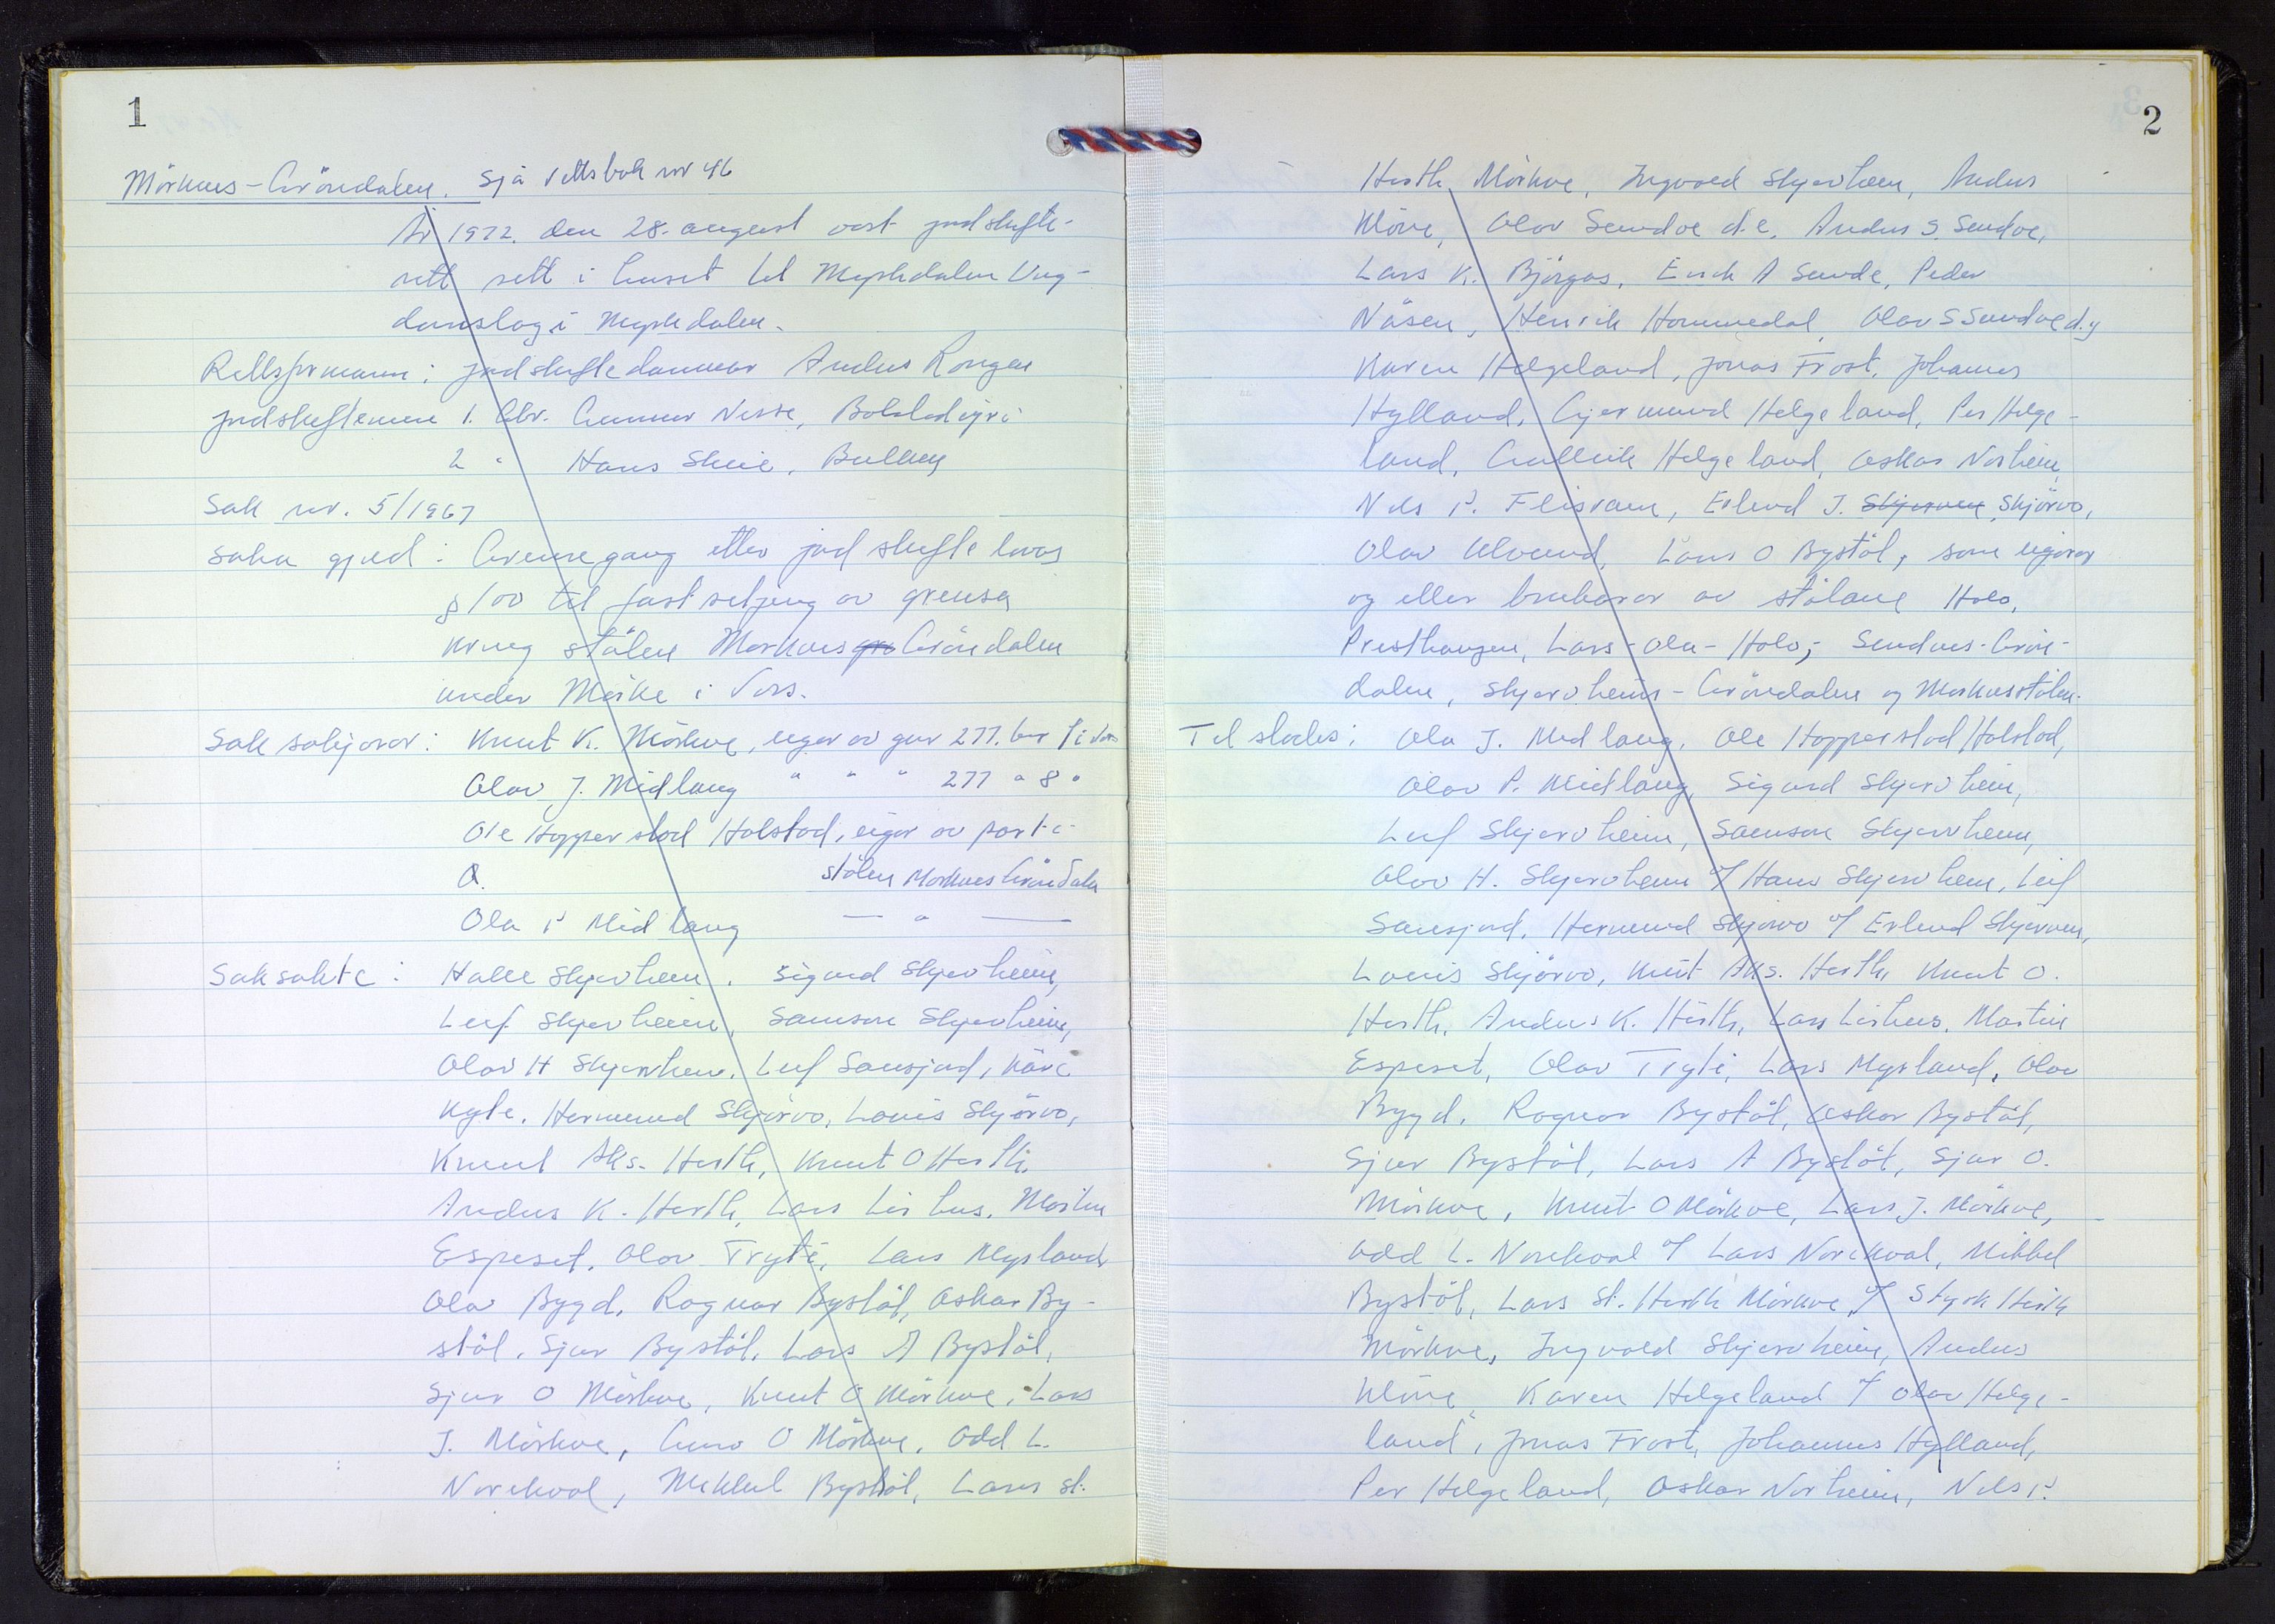 1
Mörkves-Gröndalen. Sjå rettsbok nr 46
År 1972. den 28. august vart jordskifte-
rett sett i huset til Myrkdalen Ung-
domslag i Myrkdalen.
Rettsformann: jordskiftedommar Anders Rongen
jordskiftemenn 1. Gbr. Gunnar Nesse, Bolstadöyri
2 " Hans Skeie, Bulken
Sak nr. 5/1967
Saka gjeld: Grensegang etter jordskiftelovas
§ 100 til fastsetjing av grensa
kring stölen Morkves Gröndalen
under Mörke i Voss.
Saksökjarar: Knut K. Mörkve, eigar av gnr 277. bnr 1 i Voss
Olav J. Midlang " " " 277 " 8 "
Ole Hopperstad Holstad, eigar av part i
O. stölen Morkves Gröndalen
Ola P Midlang — " —
Saksökte: Halle Skjervheim, Sigurd Skjervheim,
Leif Skjervheim, Samson Skjervheim,
Olav H Skjervheim, Leif Sausjord, Kåre
Kyte, Hermund Skjörvo, Louis Skjörvo,
Knut Aks. Hirth, Knut O Hirth.
Anders K. Hirth, Lars Lirhus, Martin
Espeset, Olav Tryti, Lars Myrland
Ola Bygd, Ragnar Bystöl, Oskar By-
stöl, Sjur Bystöl, Lars A Bystöl,
Sjur O Mörkve, Knut O Mörkve, Lars
J. Mörkve, O Mörkve, Odd L.
Norekval, Mikkel Bystöl, Lars St.
2
Hirth Mörkve, Ingvald Skjervheim, Anders
Klöve, Olav Sendve d.e. Anders S. Sendve,
Lars K. Björgås, Eirik A Sunde, Peder
Nåsen, Henrik Hommedal, Olav S Sendve d.y
Karen Helgeland, Jonas Frost, Johannes
Hylland, Gjermund Helgeland, Per Helge-
land, Gullik Helgeland, Oskar Norheim,
Nils P. Flisram, Erlend J. Skjerven Skjörvo,
Olav Ulvund, Lars O Bystöl, som eigarar
og eller brukarar av stölane Holo,
Presthaugen, Lars-Ola-Holo, Sendves-Grön-
dalen, Skjervheims-Gröndalen og Morkvesstölen.
Til stades: Ola J. Midlang, Ole Hopperstad Holstad,
Olav P. Midlang, Sigurd Skjervheim,
Leif Skjervheim, Samson Skjervheim,
Olav H. Skjervheim v/ Hans Skjervheim, Leif
Sausjord, Hermund Skjörvo v/ Erlend Skjerven,
Louis Skjörvo, Knut Aks. Hirth, Knut O.
Hirth, Anders K. Hirth, Lars Lirhus, Martin
Espeset, Olav Tryti, Lars Myrland, Olav
Bygd, Ragnar Bystöl, Oskar Bystöl,
Sjur Bystöl, Lars A Bystöl, Sjur O.
Mörkve, Knut O Mörkve, Lars J. Mörkve,
Odd L. Norekval v/ Lars Norekval, Mikkel
Bystöl, Lars St. Hirth Mörkve v/ Styrk Hirth
Mörkve, Ingvald Skjervheim, Anders
Klöve, Karen Helgeland v/ Olav Helge-
land, Jonas Frost, Johannes Hylland,
Per Helgeland, Oskar Norheim, Nils P.